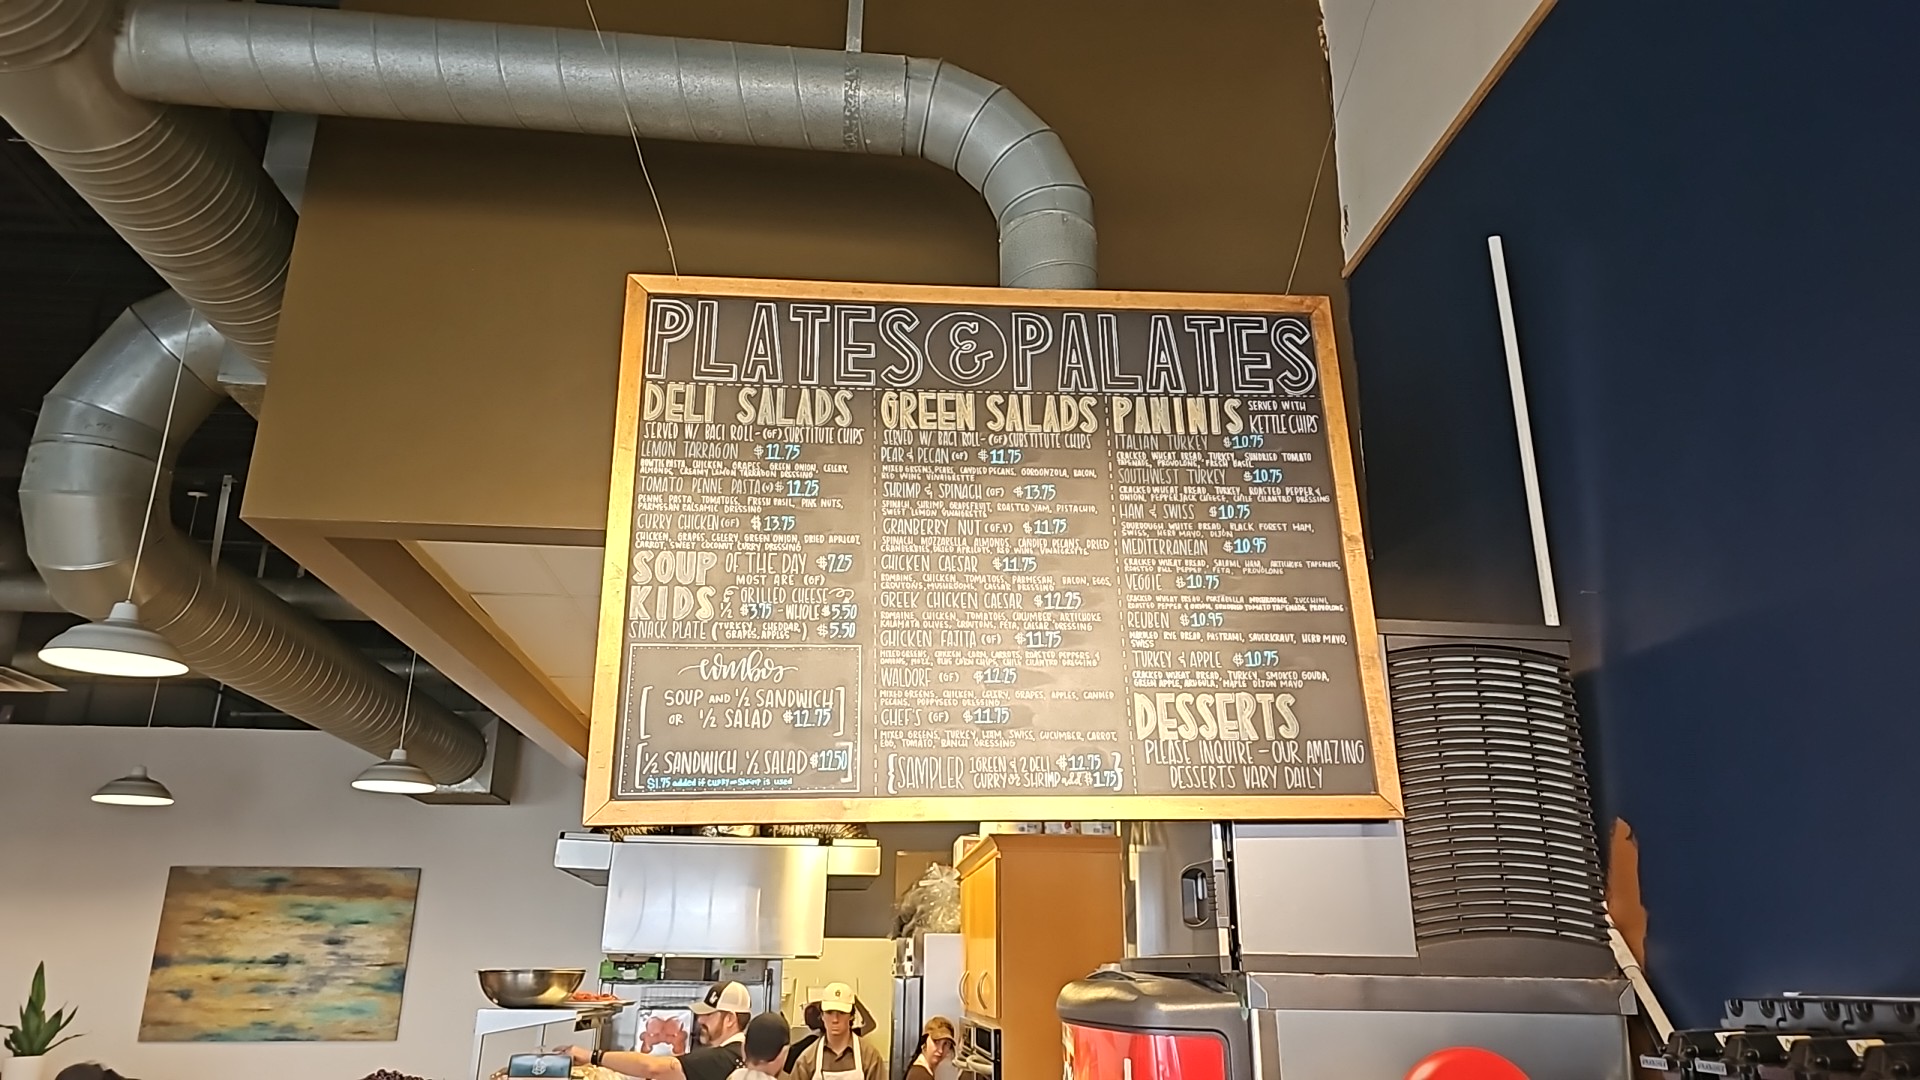 PLATES & PALATES
DELI SALADS
SERVED W/ BACI ROLL-(GF) SUBSTITUTE CHIPS
LEMON TARRAGON $12.75
BOWTIE PASTA, CHICKEN, GRAPES, GREEN ONION, CELERY,
ALMONDS, CREAMY LEMON TARRAGON DRESSING
TOMATO PENNE PASTA(V) $12.25
PENNE PASTA, TOMATOES, FRESH BASIL, PINE NUTS,
PARMESAN BALSAMIC DRESSING
CURRY CHICKEN(GF) $13.75
CHICKEN, GRAPES, CELERY, GREEN ONION, DRIED APRICOT,
CARROT, SWEET COCONUT CURRY DRESSING
SOUP OF THE DAY $7.25
MOST ARE (GF)
KIDS GRILLED CHEESE
½ $3.75 - WHOLE $5.50
SNACK PLATE (TURKEY, CHEDDAR, GRAPES, APPLES) $5.50
combos
[SOUP AND ½ SANDWICH
OR ½ SALAD $12.75]
[½ SANDWICH ½ SALAD $12.50]
$1.75 added if curry or shrimp is used
GREEN SALADS
SERVED W/ BACI ROLL-(GF) SUBSTITUTE CHIPS
PEAR & PECAN(GF) $11.75
MIXED GREENS, PEARS, CANDIED PECANS, GORGONZOLA, BACON,
RED WINE VINAIGRETTE
SHRIMP & SPINACH (GF) $13.75
SPINACH, SHRIMP, GRAPEFRUIT, ROASTED YAM, PISTACHIO,
SWEET LEMON VINAIGRETTE
CRANBERRY NUT (GF,V) $11.75
SPINACH, MOZZARELLA, ALMONDS, CANDIED PECANS, DRIED
CRANBERRIES, DRIED APRICOTS, RED WINE VINAIGRETTE
CHICKEN CAESAR $11.75
ROMAINE, CHICKEN, TOMATOES, PARMESAN, BACON, EGGS,
CROUTONS, MUSHROOMS, CAESAR DRESSING
GREEK CHICKEN CAESAR $12.25
ROMAINE, CHICKEN, TOMATOES, CUCUMBER, ARTICHOKE
KALAMATA OLIVES, CROUTONS, FETA, CAESAR DRESSING
CHICKEN FAJITA (GF) $11.75
MIXED GREENS, CHICKEN, CORN, CARROTS, ROASTED PEPPERS &
ONIONS, MOZZ., BLUE CORN CHIPS, CHILE CILANTRO DRESSING
WALDORF (GF) $12.25
MIXED GREENS, CHICKEN, CELERY, GRAPES, APPLES, CANDIED
PECANS, POPPYSEED DRESSING
CHEF'S (GF) $11.75
MIXED GREENS, TURKEY, HAM, SWISS, CUCUMBER, CARROT,
EGG, TOMATO, RANCH DRESSING
{SAMPLER 1 GREEN & 2 DELI $12.75
CURRY OR SHRIMP add $1.75}
PANINIS SERVED WITH
KETTLE CHIPS
ITALIAN TURKEY $10.75
CRACKED WHEAT BREAD, TURKEY, SUNDRIED TOMATO
TAPENADE, PROVOLONE, FRESH BASIL
SOUTHWEST TURKEY $10.75
CRACKED WHEAT BREAD, TURKEY, ROASTED PEPPER &
ONION, PEPPERJACK CHEESE, CHILE CILANTRO DRESSING
HAM & SWISS $10.75
SOURDOUGH WHITE BREAD, BLACK FOREST HAM,
SWISS, HERB MAYO, DIJON
MEDITERRANEAN $10.95
CRACKED WHEAT BREAD, SALAMI, HAM, ARTICHOKE TAPENADE,
ROASTED BELL PEPPER, FETA, PROVOLONE
VEGGIE $10.75
CRACKED WHEAT BREAD, PORTABELLA MUSHROOMS, ZUCCHINI,
ROASTED PEPPER & ONION, SUNDRIED TOMATO TAPENADE, PROVOLONE
REUBEN $10.95
MARBLED RYE BREAD, PASTRAMI, SAUERKRAUT, HERB MAYO,
SWISS
TURKEY & APPLE $10.75
CRACKED WHEAT BREAD, TURKEY, SMOKED GOUDA,
GREEN APPLE, ARUGULA, MAPLE DIJON MAYO
DESSERTS
PLEASE INQUIRE - OUR AMAZING
DESSERTS VARY DAILY